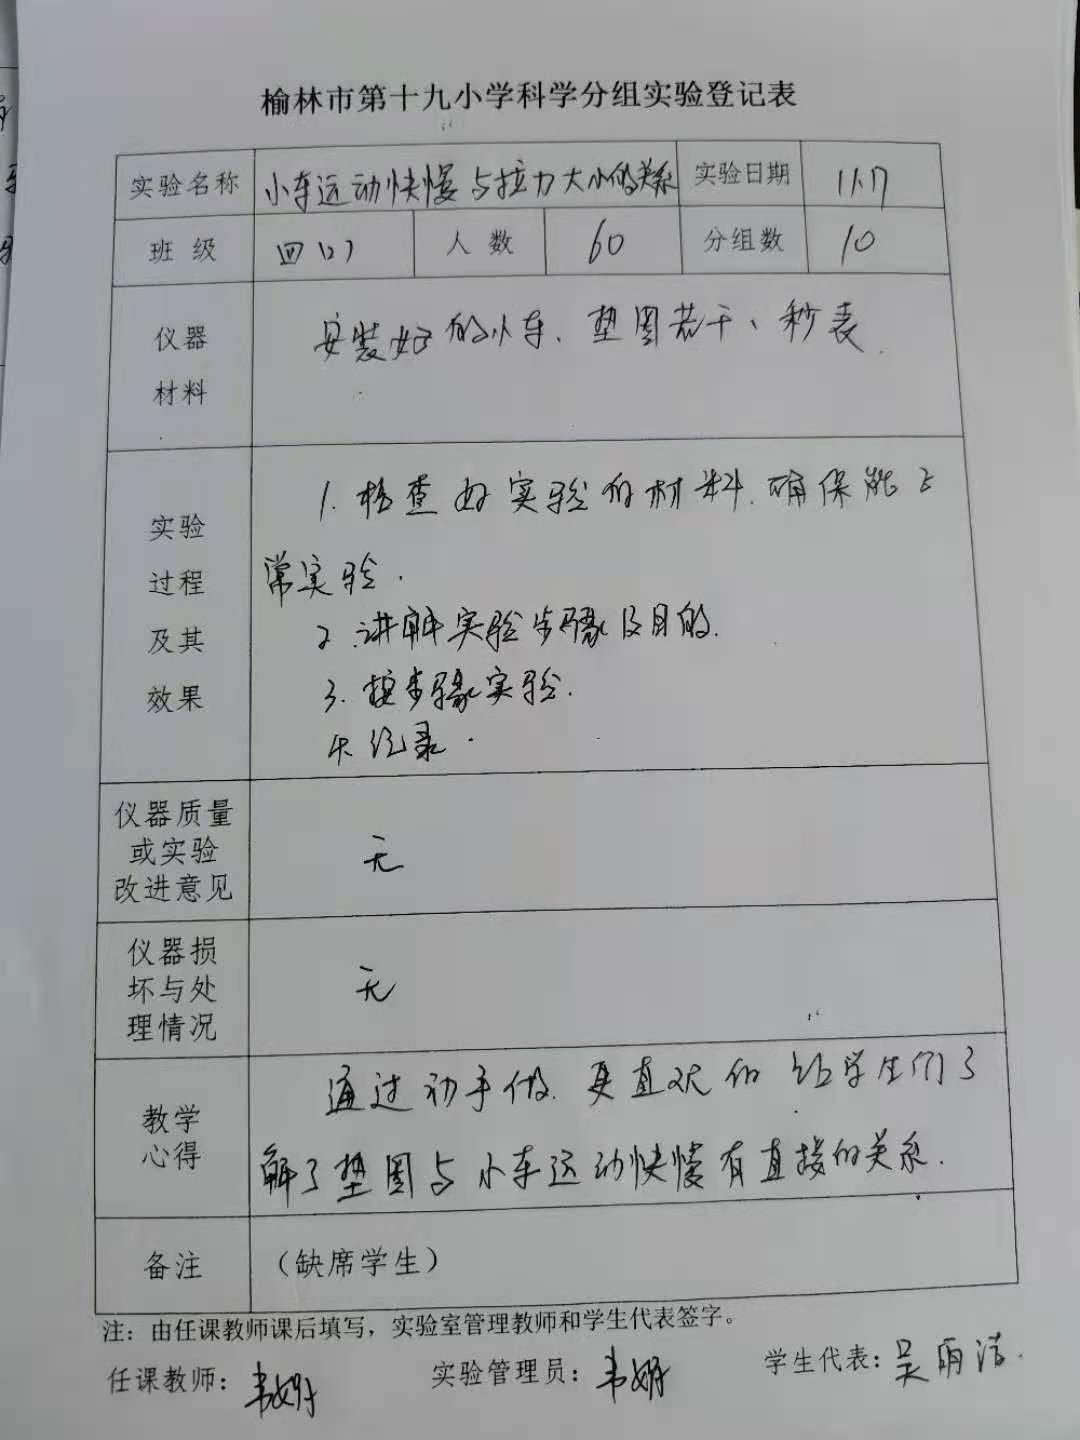 榆林市第十九小学科学分组实验登记表
实验名称 小车运动快慢与拉力大小的关系 实验日期 11.17
班级 四(2) 人数 60 分组数 10
仪器
材料
安装好的小车、垫圈若干、秒表.
实验
过程
及其
效果
1.检查好实验的材料.确保能正
常实验.
2.讲解实验步骤及目的.
3.按步骤实验.
4.记录.
仪器质量
或实验
改进意见
无
仪器损
坏与处
理情况
无
教学
心得
通过动手做.更直观的给学生们了
解了垫圈与小车运动快慢有直接的关系.
备注 (缺席学生)
注：由任课教师课后填写，实验室管理教师和学生代表签字。
任课教师： 实验管理员： 学生代表：吴丽洁.